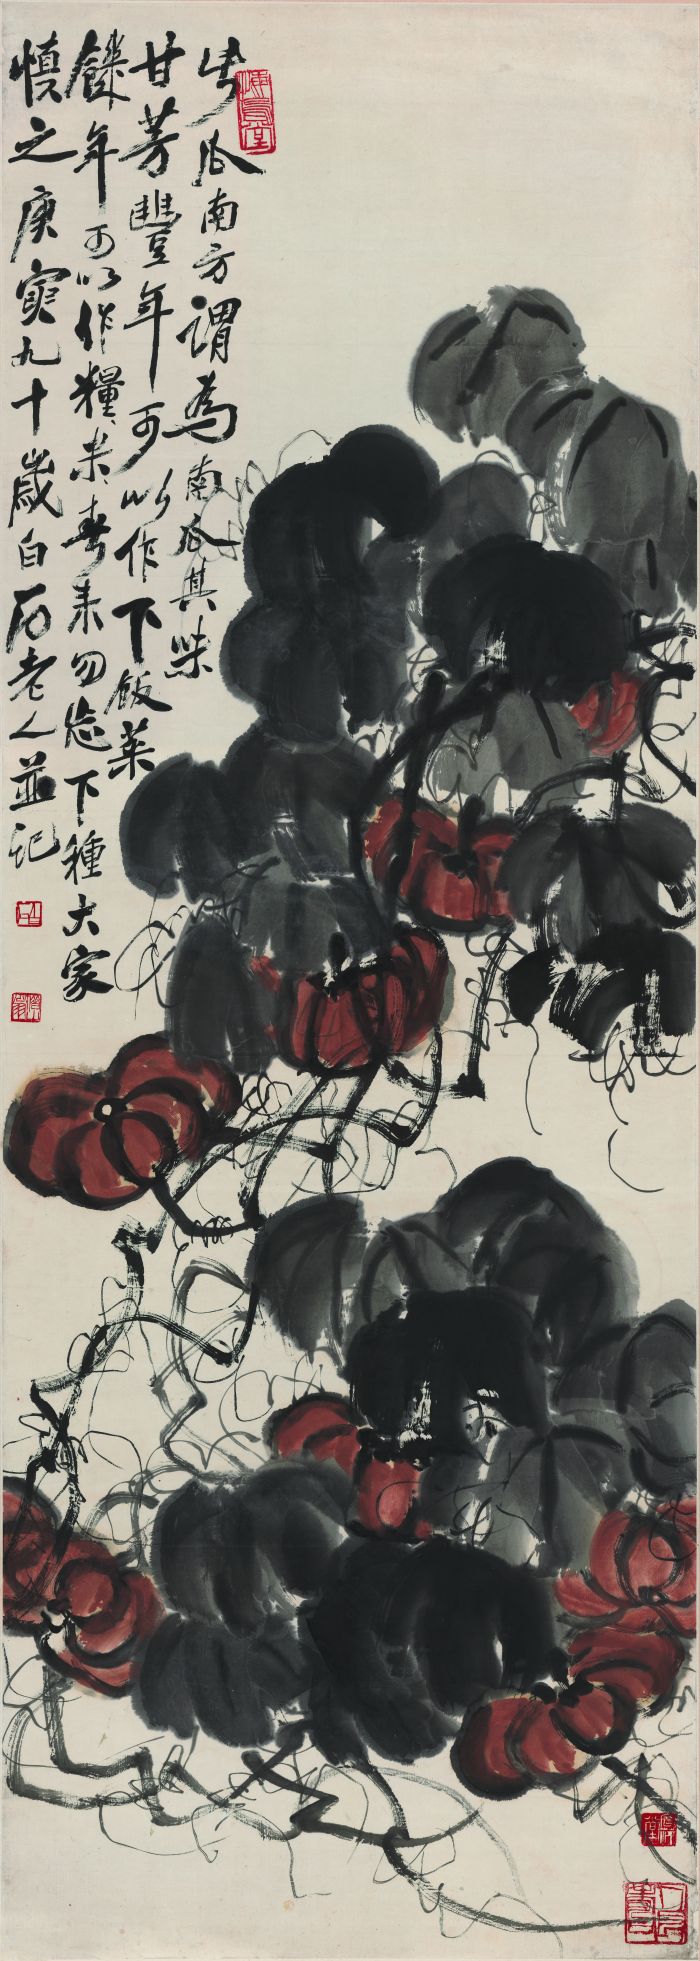 牛瓜南方謂為南瓜其味
甘芳豐年可以作下飯菜
饑年可以作糧米春來勿忘下種大家
慎之庚寅九十歲白石老人並記